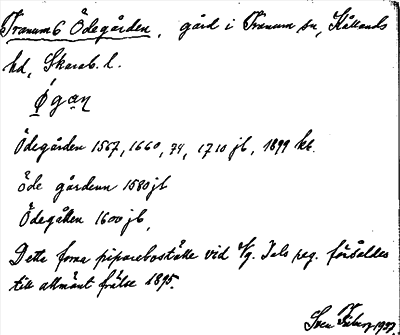 Tranum 6 Ödegården, gård i Tranum sn, Kållands
hd, Skarab. l.
Ödegården 1567, 1660, 74, 1710 jb, 1899 kt.
öde gårdenn 1580 jb
Ödegården 1600 jb,
Detta forna pipareboställe vid V.g. Dals reg. försåldes
till allmänt frälse 1895.
Sven